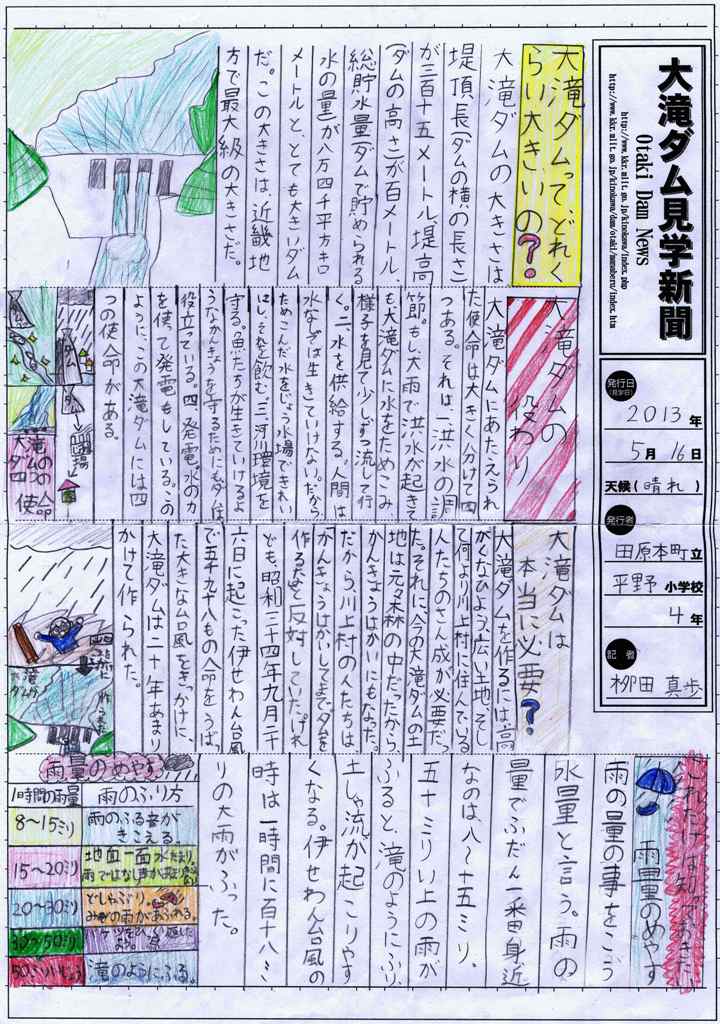 大滝ダム見学新聞
Otaki Dam News
http://www.kkr.mlit.go.jp/kinokawa/index.php
発行日
(見学日)
2013年
5月16日
天候(晴れ)
発行者
田原本町立
平野小学校
4年
記者
柳田 真歩
大滝ダムってどれく
らい大きいの?
大滝ダムの大きさは
堤頂長(ダムの横の長さ
が三百十五メートル、堤高
(ダムの高さ)が百メートル、
総貯水量(ダムで貯められる
水の量)が八万四千平方キロ
メートルと、とても大きいダム
だ。この大きさは、近畿地
方で最大級の大きさだ。
大滝ダムの
役わり
大滝ダムにあたえられ
た使命は大きく分けて四
つある。それは、一、洪水の調
節。もし、大雨で洪水が起きて
も、大滝ダムに水をためこみ
様子を見て少しずつ流して行
く。二、水を供給する。人間は
水なしでは生きていけない。だから
ためこんだ水をじょう水場できれい
にし、それを飲む。三、河川環境を
守る。魚たちが生きていけるよ
うなかんきょうを守るためにもダムは
役立っている。四、発電。水の力
を使って発電もしている。この
ように、この大滝ダムには四
つの使命がある。
大滝
ダムの
四つの
使命
大滝ダムは
本当に必要?
大滝ダムを作るには、高
がくなひよう、広い土地、そし
て何より川上村に住んでいる
人たちのさん成が必要だっ
た。それに、今の大滝ダムの土
地は元々森の中だったから、
かんきょうはかいにもなった。
だから、川上村の人たちは
かんきょうはかいしてまでダムを
作るなと反対していた。けれ
ども、昭和三十四年九月二十
六日に起こった伊せわん台風
で五千九十八もの命をうばっ
た大きな台風をきっかけに、
大滝ダムは二十年あまり
かけて作られた。
これだけは知っておきたい
雨量のめやす
雨の量の事をこう
水量と言う。雨の
量でふだん一番身近
なのは、八〜十五ミリ、
五十ミリい上の雨が
ふると、滝のようにふり、
土しゃ流が起こりやす
くなる。伊せわん台風の
時は一時間に百十八ミ
リの大雨がふった。
雨量のめやす
1時間の雨量
雨のふり方
8〜15ミリ
雨のふる音が
きこえる
15〜20ミリ
地面一面水たまり。
20〜30ミリ
どしゃぶり。
みぞの雨があふれる。
30〜50ミリ
50ミリいじょう
滝のようにふる。